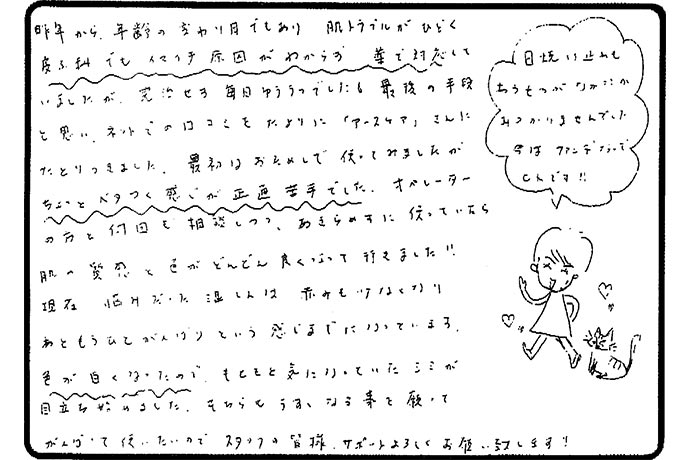 昨年から、年齢のかわり目でもあり 肌トラブルがひどく
皮ふ科でも イマイチ原因がわからず 薬で対応して
いましたが、完治せず 毎日ゆううつでした。最後の手段
と思い、ネットでの口コミをたよりに「アースケア」さんに
たどりつきました。最初はおためしで使ってみましたが
ちょっとベタつく感じが正直苦手でした。オペレーター
の方と何回も相談しつつ、あきらめずに使っていたら
肌の質感と色がどんどん良くなって行きました!!
現在 悩みだった湿しんは 赤みも少なくなり
あともうひとがんばりという感じまでになっています。
色が白くなったので、もともと気になっていたシミが
目立ち始めました。そちらもうすくなる事を願って
がんばって使いたいので スタッフの皆様、サポートよろしくお願い致します!
日焼け止めも
あうものがなかなか
みつかりませんでした
今は ファンデ なしで
OKです!!